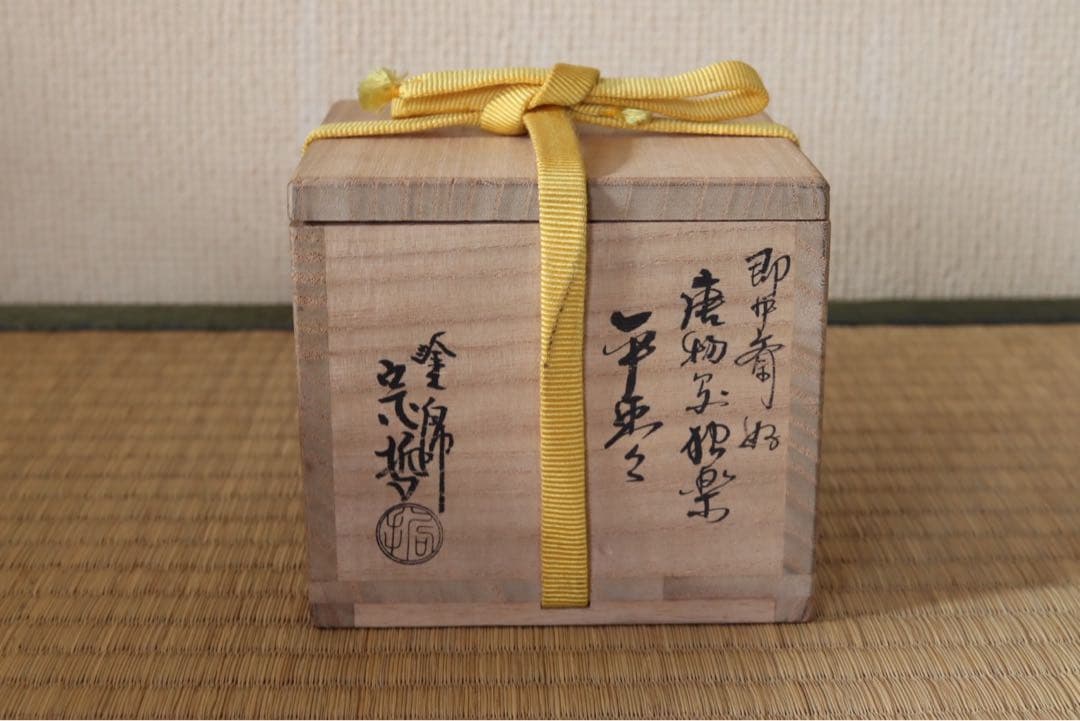 即中斎好
唐物写独楽
平棗
塗師
宗哲
哲